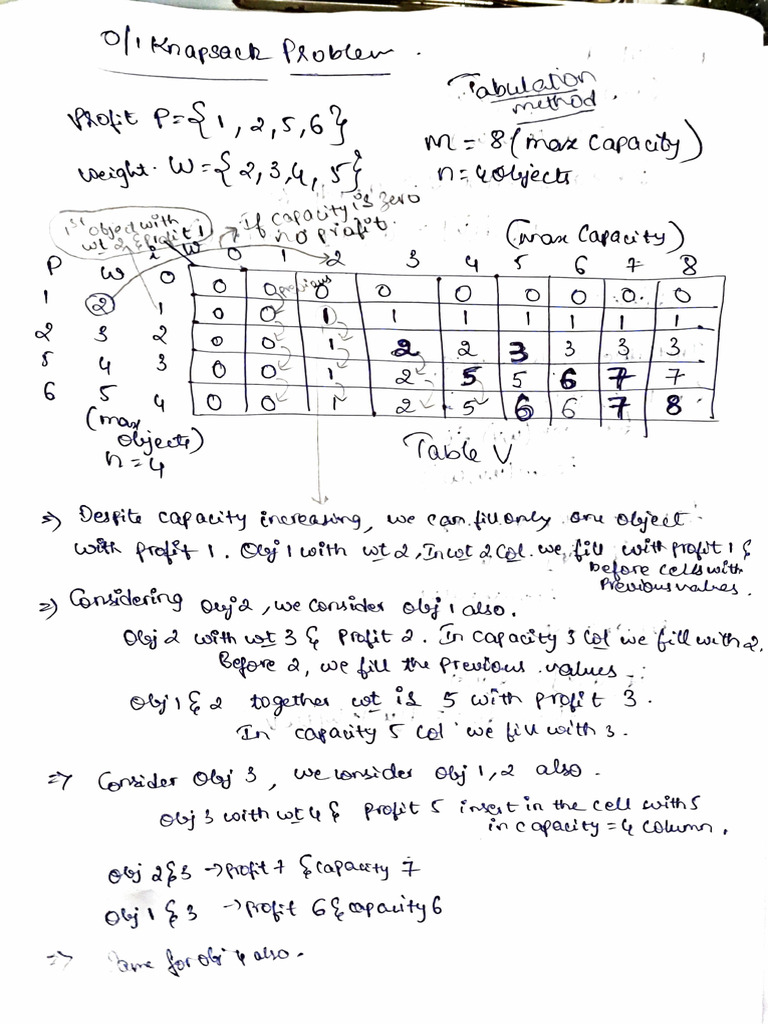 0/1 Knapsack Problem.
Tabulation method.
Profit P = {1, 2, 5, 6}
m = 8 (max capacity)
Weight. W = {2, 3, 4, 5}
n = 4 objects
1st object with wt 2 & profit 1
If capacity is zero no profit.
(max capacity)
P w i w 0 1 2 3 4 5 6 7 8
0 0 0 0 0 0 0 0 0 0
previous
1 2 1 0 0 1 1 1 1 1 1 1
2 3 2 0 0 1 2 2 3 3 3 3
5 4 3 0 0 1 2 5 5 6 7 7
6 5 4 0 0 1 2 5 6 6 7 8
(max objects)
n = 4
Table V
=> Despite capacity increasing, we can fill only one object
with profit 1. Obj 1 with wt 2, In wt 2 Col. we fill with profit 1 &
before cells with
Previous values.
=> Considering obj 2, we consider obj 1 also.
Obj 2 with wt 3 & profit 2. In capacity 3 col we fill with 2.
Before 2, we fill the previous values.
Obj 1 & 2 together wt is 5 with profit 3.
In capacity 5 col we fill with 3.
=> Consider Obj 3, we consider obj 1, 2 also.
Obj 3 with wt 4 & profit 5 insert in the cell with 5
in capacity = 4 column.
Obj 2 & 3 -> profit 7 & capacity 7
Obj 1 & 3 -> profit 6 & capacity 6
=> Same for obj 4 also.